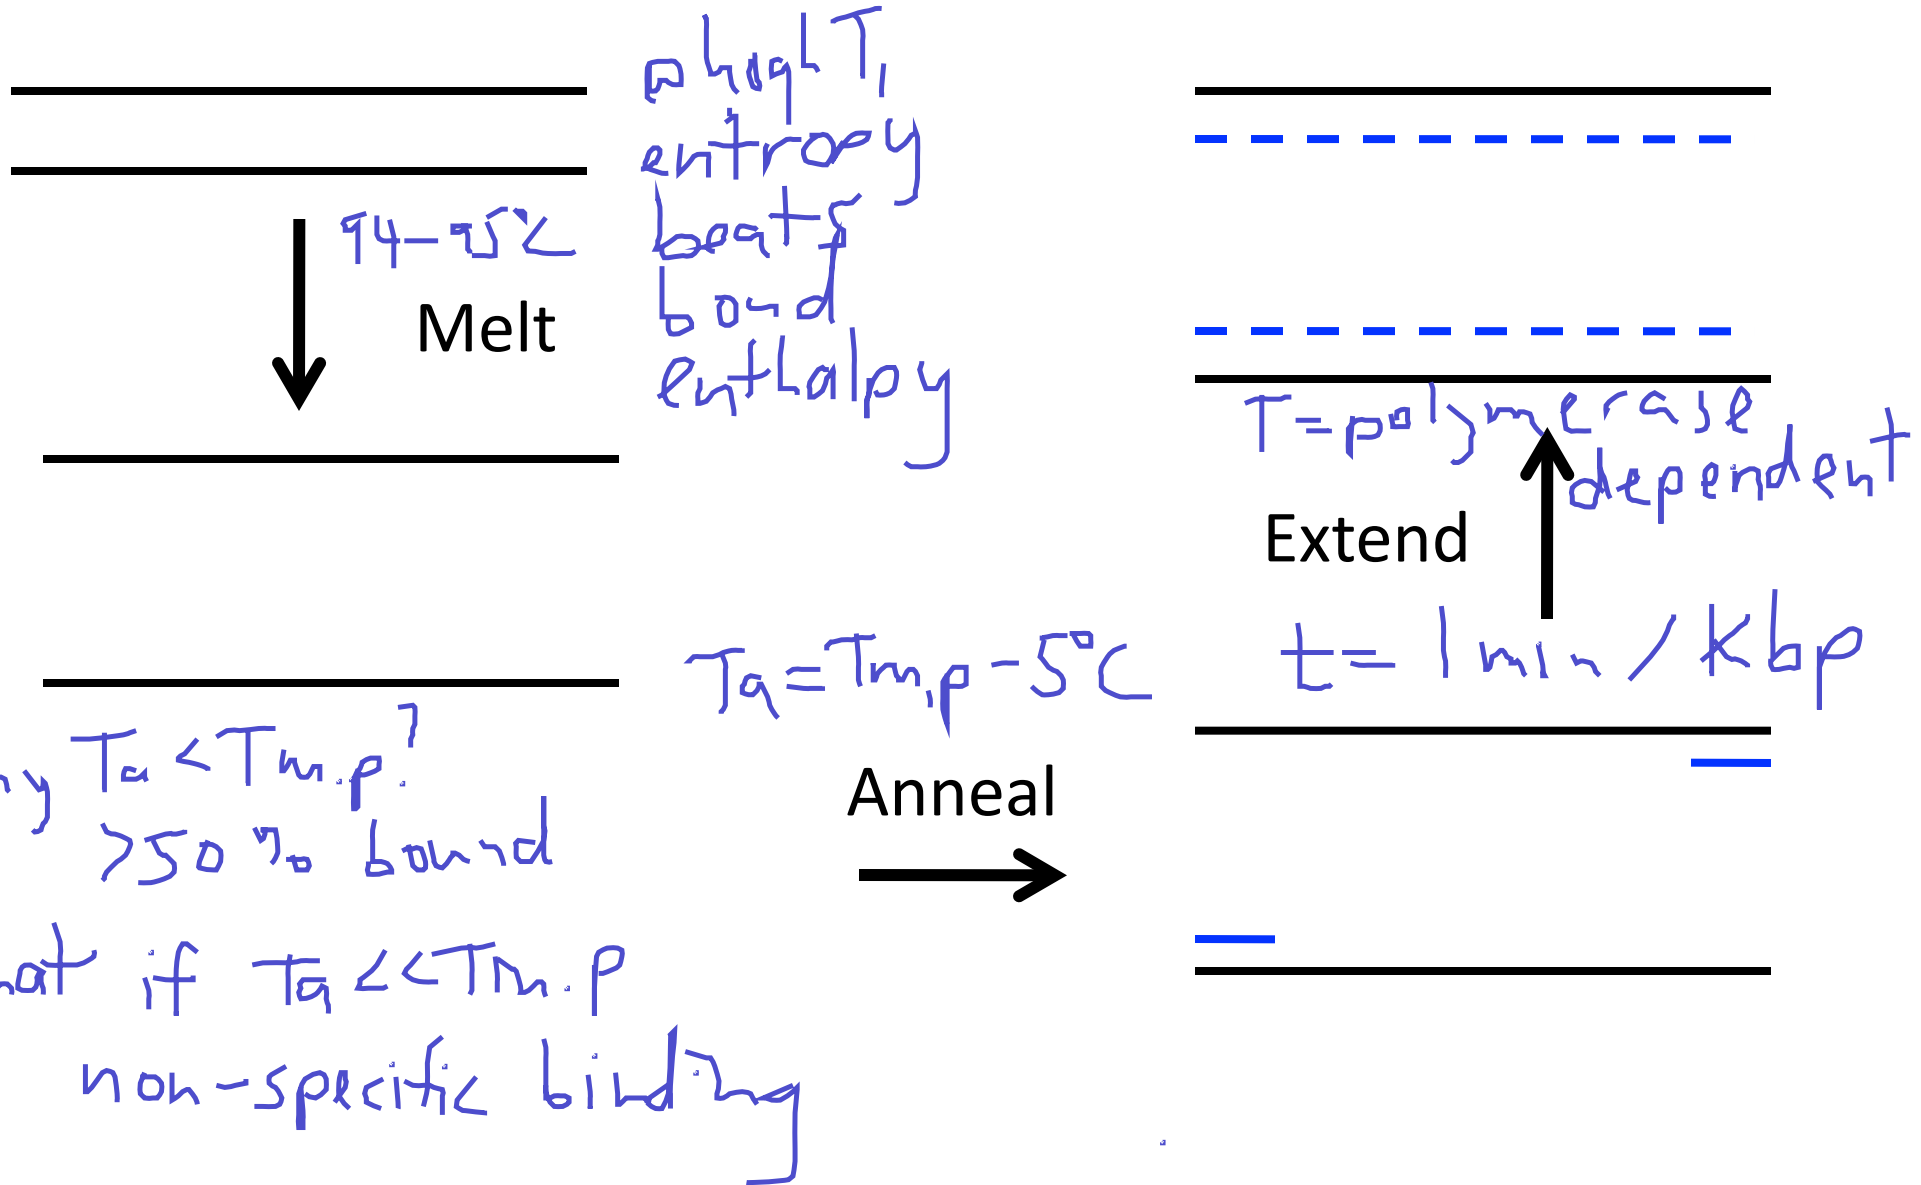 high T,
entropy
beats
bond
enthalpy
94-95°C
Melt
T = polymerase
dependent
Extend
t = 1 min / Kbp
Ta = Tm,p - 5°C
Anneal
Ta < Tm,p?
>50% bound
if Ta << Tm,p
non-specific binding